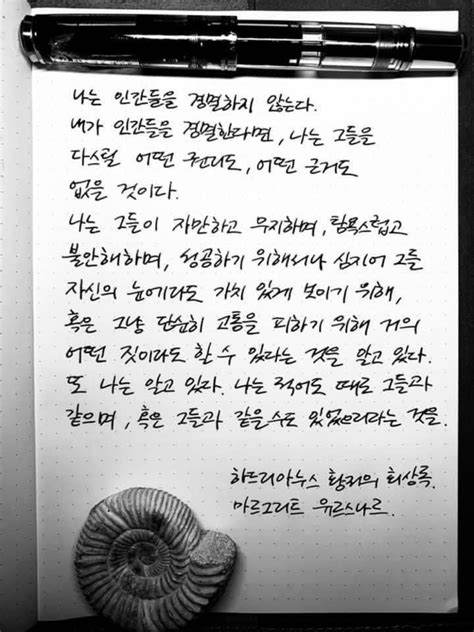 나는 인간들을 경멸하지 않는다.
내가 인간들을 경멸한다면, 나는 그들을
다스릴 어떤 권리도, 어떤 근거도
없을 것이다.
나는 그들이 자만하고 무지하며, 탐욕스럽고
불안해하며, 성공하기 위해서나 심지어 그들
자신의 눈에라도 가치 있게 보이기 위해,
혹은 그냥 단순히 고통을 피하기 위해 거의
어떤 짓이라도 할 수 있다는 것을 알고 있다.
또 나는 알고 있다. 나는 적어도 때로 그들과
같으며, 혹은 그들과 같을 수도 있었으리라는 것을.
하드리아누스 황제의 회상록.
마르그리트 유르스나르.